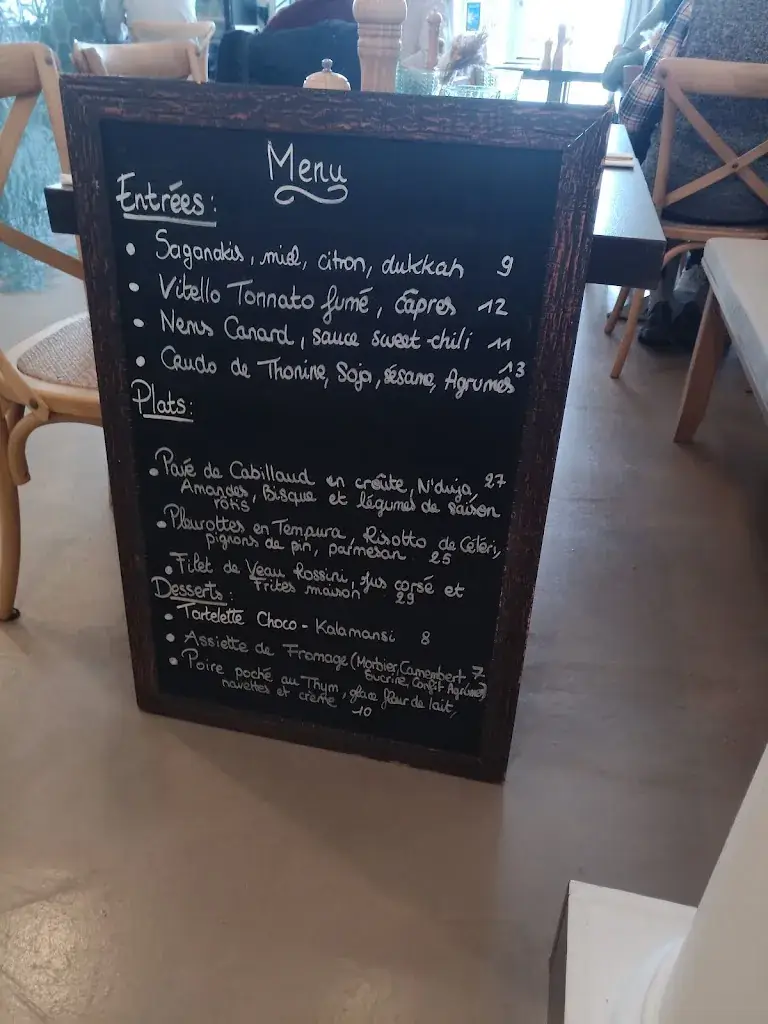 Menu
Entrées :
• Saganakis, miel, citron, dukkah 9
• Vitello Tonnato fumé, câpres 12
• Nems Canard, sauce sweet-chili 11
• Crudo de Thonine, Soja, sésame, Agrumes 13
Plats :
• Pavé de Cabillaud en croûte, N'duja, 27
Amandes, Bisque et légumes de saison
rôtis
• Pleurottes en Tempura, Risotto de Céleri,
pignons de pin, parmesan 25
• Filet de Veau Rossini, jus corsé et
Frites maison 29
Desserts :
• Tartelette Choco - Kalamansi 8
• Assiette de Fromage (Morbier, Camembert 7
Sucrine, Confit Agrumes)
• Poire poché au Thym, glace fleur de lait,
navettes et crème
10